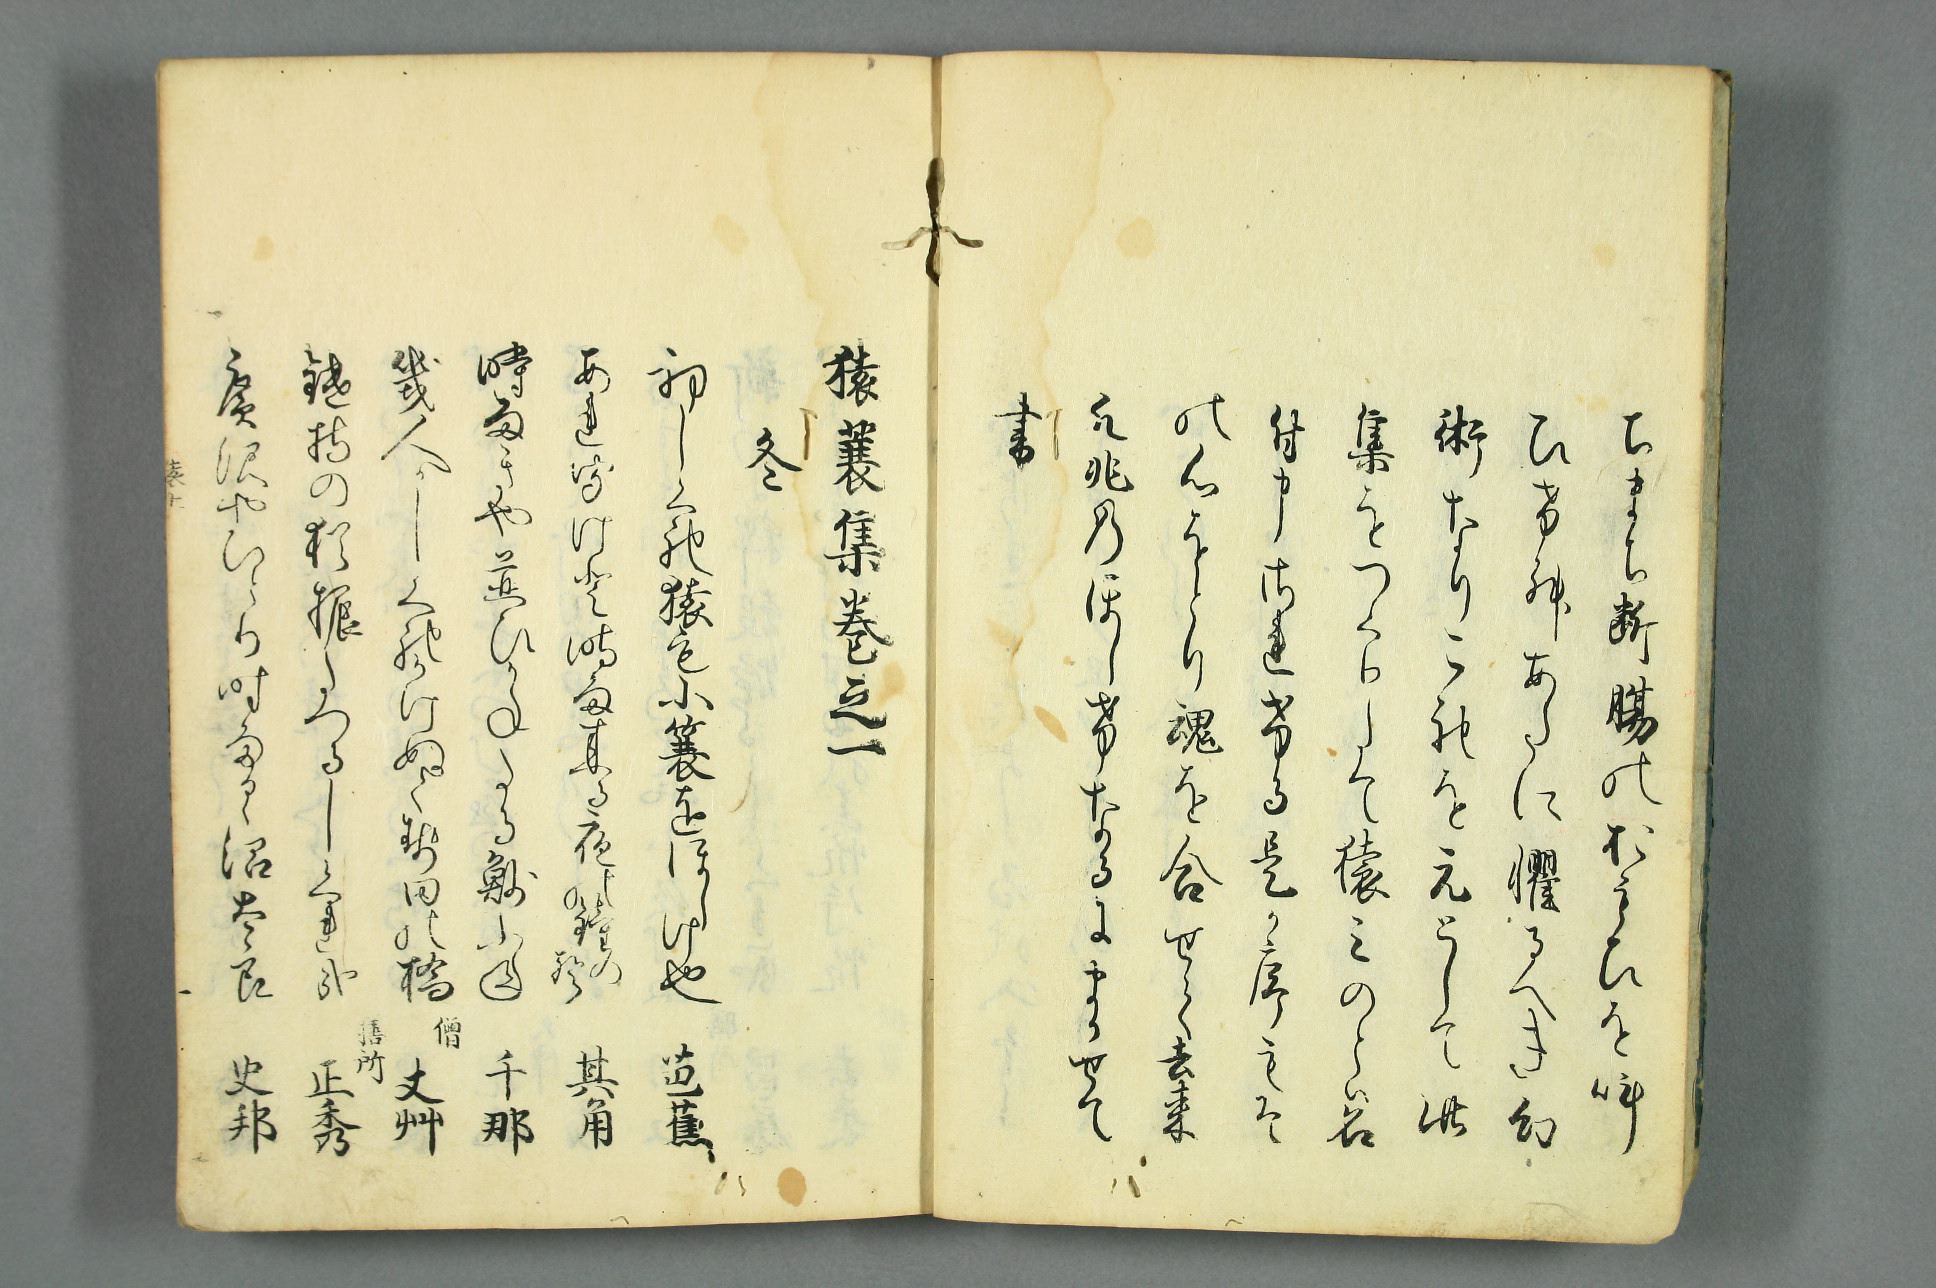 たちまち断腸のおもひを叫
ひけむあたに懼るへき幻
術なりこれを元として此
集をつくりたて猿みのとは名
付申されける是か序もそ
の心をとり魂を合せて去来
凡兆のほしけなるにまかせて
書
猿蓑集巻之一
冬
初しくれ猿も小蓑をほしけ也 芭蕉
あれ聞けと時雨来る夜の鐘の声 其角
時雨きや並ひかねたる魦ふね 千那
幾人かしくれかけぬく勢田の橋 僧 丈艸
鑓持の猶振たつるしくれ哉 膳所 正秀
広沢やひとり時雨るゝ沼太良 史邦